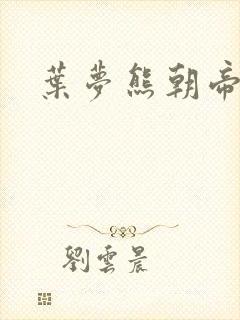 葉夢熊朝帝
劉雲晨